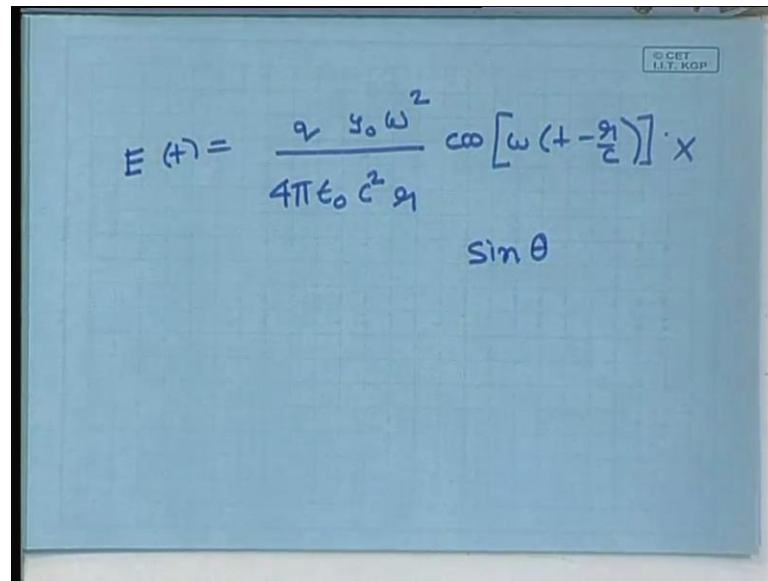 © CET
I.I.T. KGP
E (t) = q y₀ ω² / 4π ε₀ c² r cos [ω (t - r/c)] · X
sin θ